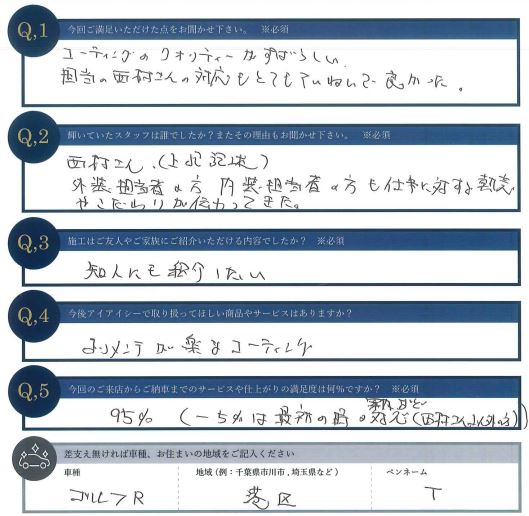 Q,1 今回ご満足いただけた点をお聞かせ下さい。 ※必須
コーティングのクオリティーがすばらしい
担当の西村さんの対応もとてもていねいで良かった。
Q,2 輝いていたスタッフは誰でしたか?またその理由もお聞かせ下さい。 ※必須
西村さん、(上記記述)
外装担当者の方 内装担当者の方も仕事に対する熱意
やこだわりが伝わってきた。
Q,3 施工はご友人やご家族にご紹介いただける内容でしたか? ※必須
知人にも紹介したい
Q,4 今後アイアイシーで取り扱ってほしい商品やサービスはありますか?
よりメンテが楽なコーティング
Q,5 今回のご来店からご納車までのサービスや仕上がりの満足度は何%ですか? ※必須
95% (-5%は最初の 対応(西村さん以外の))
差支え無ければ車種、お住まいの地域をご記入ください
車種 地域(例:千葉県市川市,埼玉県など) ペンネーム
ゴルフR 港区 T